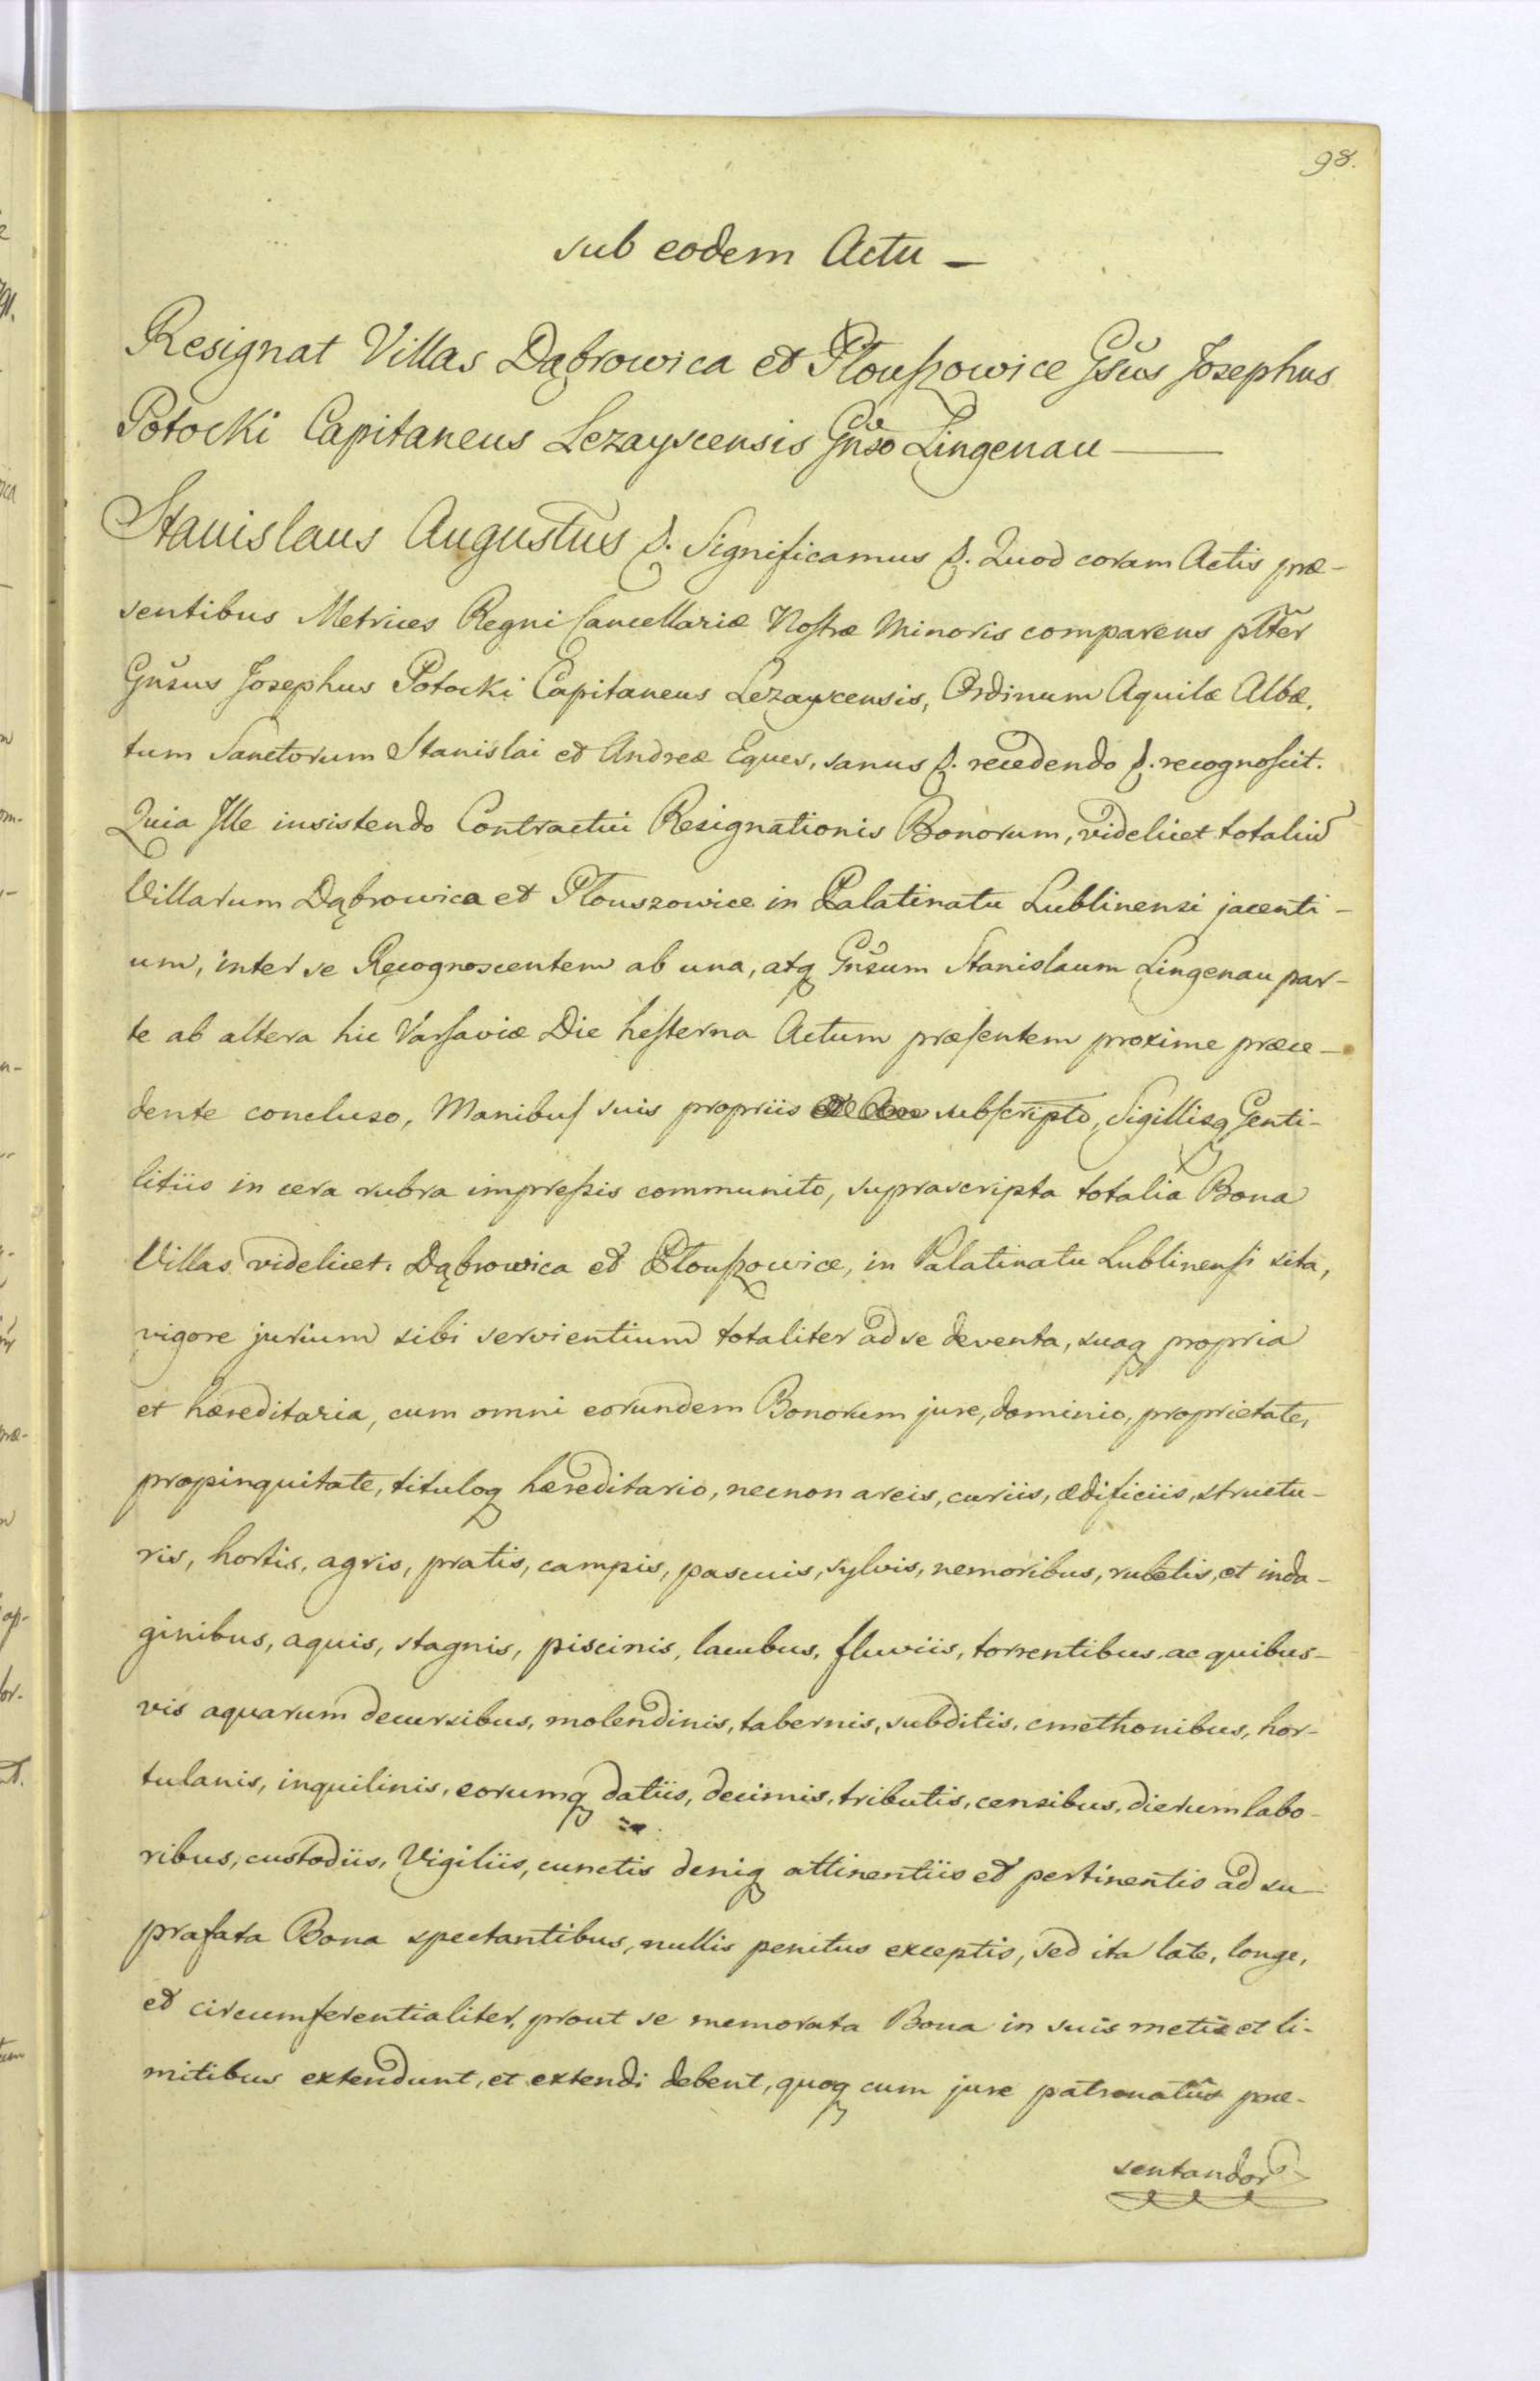 98.
sub eodem Actu —
Resignat Villas Dąbrowica et Płouſzowice Gsus Josephus
Potocki Capitaneus Lezayscensis Gnso Lingenau —
Stanislaus Augustus &. Significamus &. Quod coram Actis præ-
sentibus Metrices Regni Cancellariæ Noſtræ Minoris comparens pltter
Gnsus Josephus Potocki Capitaneus Lezayscensis, Ordinum Aquilæ Albæ,
tum Sanctorum Stanislai et Andreæ Eques, sanus &. recedendo &. recognoſcit.
Quia Ille insistendo Contractui Resignationis Bonorum, videlicet totaliū
Villarum Dąbrowica et Płouszowice in Palatinatu Lublinensi jacenti-
um, inter se Recognoscentem ab una, atq Gnsum Stanislaum Lingenau par-
te ab altera hic Varſaviæ Die heſterna Actum præſentem proxime præce-
dente concluso, Manibus suis propriis subſcripto, Sigillisq Genti-
litiis in cera rubra impreſsis communito, suprascripta totalia Bona
Villas videlicet. Dąbrowica et Płouſzowice, in Palatinatu Lublinenſi sita,
vigore jurium sibi servientium totaliter ad se deventa, suaq propria
et hæreditaria, cum omni eorundem Bonorum jure, dominio, proprietate,
propinquitate, tituloq hæreditario, necnon areis, curiis, ædificiis, structu-
ris, hortis, agris, pratis, campis, pascuis, sylvis, nemoribus, rubetis, et inda-
ginibus, aquis, stagnis, piscinis, lacubus, fluviis, torrentibus ac quibus-
vis aquarum decursibus, molendinis, tabernis, subditis, cmethonibus, hor-
tulanis, inquilinis, eorumq datiis, decimis, tributis, censibus, dierum labo-
ribus, custodiis, Vigiliis, cunctis deniq attinentiis et pertinentis ad su
prafata Bona spectantibus, nullis penitus exceptis, sed ita late, longe,
et circumferentialiter, prout se memorata Bona in suis metis et li-
mitibus extendunt, et extendi debent, quoq cum jure patronatûs præ-
sentandor